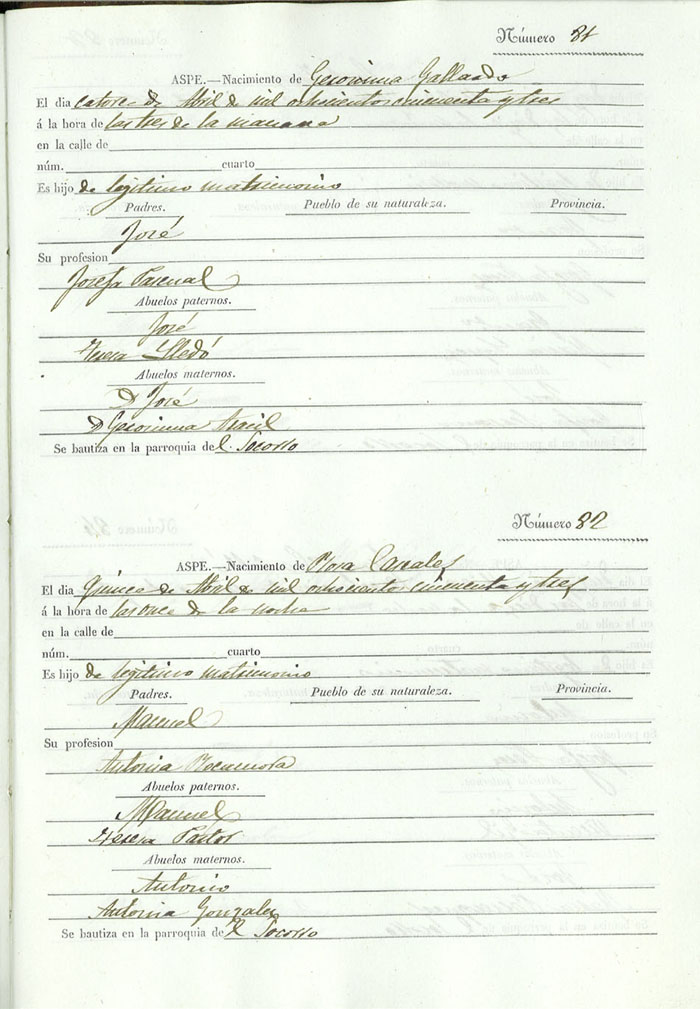 Número 81
ASPE.—Nacimiento de Geronima Gallardo
El dia catorce de Abril de mil ochocientos cincuenta y tres
á la hora de las tres de la mañana
en la calle de
núm. cuarto
Es hijo de legitimo matrimonio
Padres. Pueblo de su naturaleza. Provincia.
José
Su profesion
Josefa Pascual
Abuelos paternos.
José
Teresa Lledó
Abuelos maternos.
D José
D Geronima Aracil
Se bautiza en la parroquia del Socorro
Número 82
ASPE.—Nacimiento de Rosa Canales
El dia Quince de Abril de mil ochocientos cincuenta y tres
á la hora de las once de la noche
en la calle de
núm. cuarto
Es hijo de legitimo matrimonio
Padres. Pueblo de su naturaleza. Provincia.
Manuel
Su profesion
Antonia Rocamora
Abuelos paternos.
Manuel
Teresa Pastor
Abuelos maternos.
Antonio
Antonia Gonzalez
Se bautiza en la parroquia de l Socorro